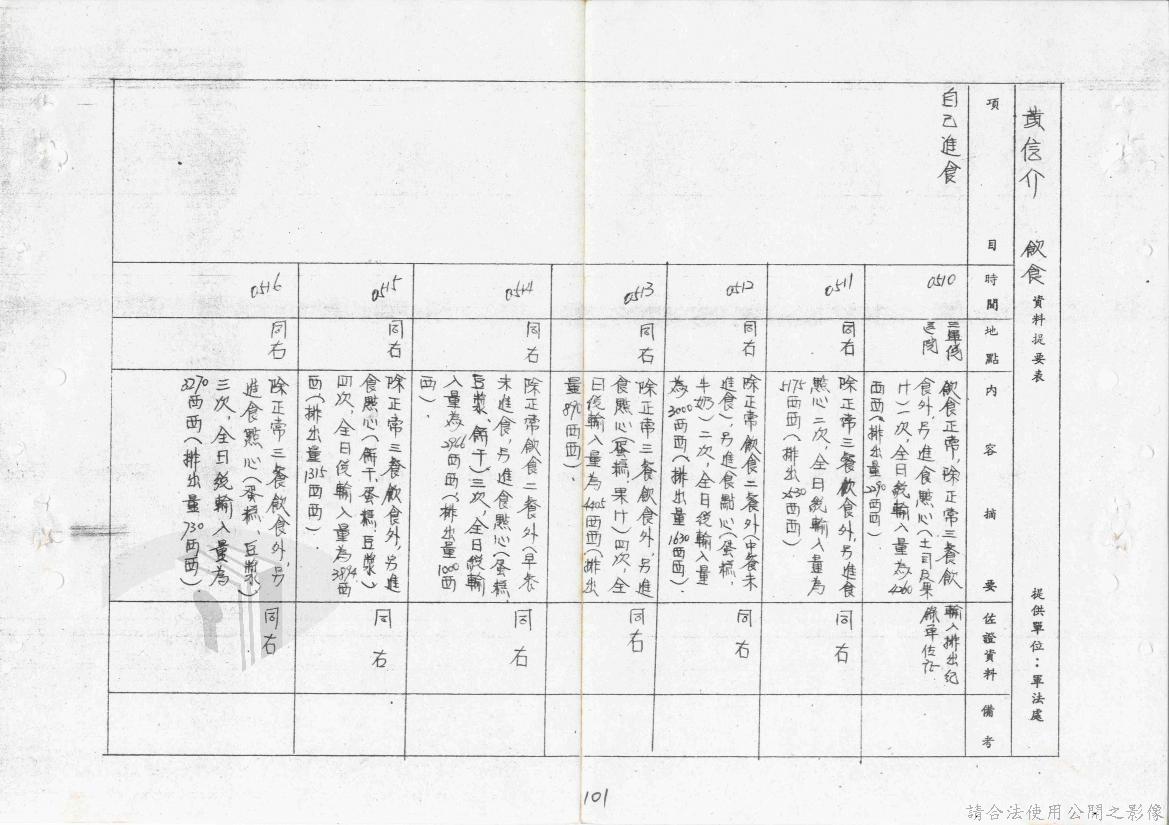 黃信介 飲食資料提要表 提供單位：軍法處
項目
時間
地點
內容摘要
佐證資料
備考
自己進食
0510
三軍總
醫院
飲食正常，除正常三餐飲
食外，另進食點心（土司及果
汁）一次，全日總輸入量為4260
西西（排出量2290西西）
輸入排出紀
錄單佐証
0511
同右
除正常三餐飲食外，另進食
點心二次，全日總輸入量為
5175西西（排出2630西西）
同右
0512
同右
除正常飲食二餐外（中餐未
進食），另進食點心（蛋糕，
牛奶）二次，全日總輸入量
為3000西西（排出量1630西西）
同右
0513
同右
除正常三餐飲食外，另進
食點心（蛋糕，果汁）四次，全
日總輸入量為4405西西（排出
量890西西）
同右
0514
同右
除正常飲食二餐外（早餐
未進食，另進食點心（蛋糕，
豆漿、餅干）三次，全日總輸
入量為2966西西（排出量1000西
西）
同右
0515
同右
除正常三餐飲食外，另進
食點心（餅干，蛋糕，豆漿）
四次，全日總輸入量為3894西
西（排出量1315西西）
同右
0516
同右
除正常三餐飲食外，另
進食點心（蛋糕、豆漿）
三次，全日總輸入量為
3270西西（排出量730西西）
同右
101
請合法使用公開之影像